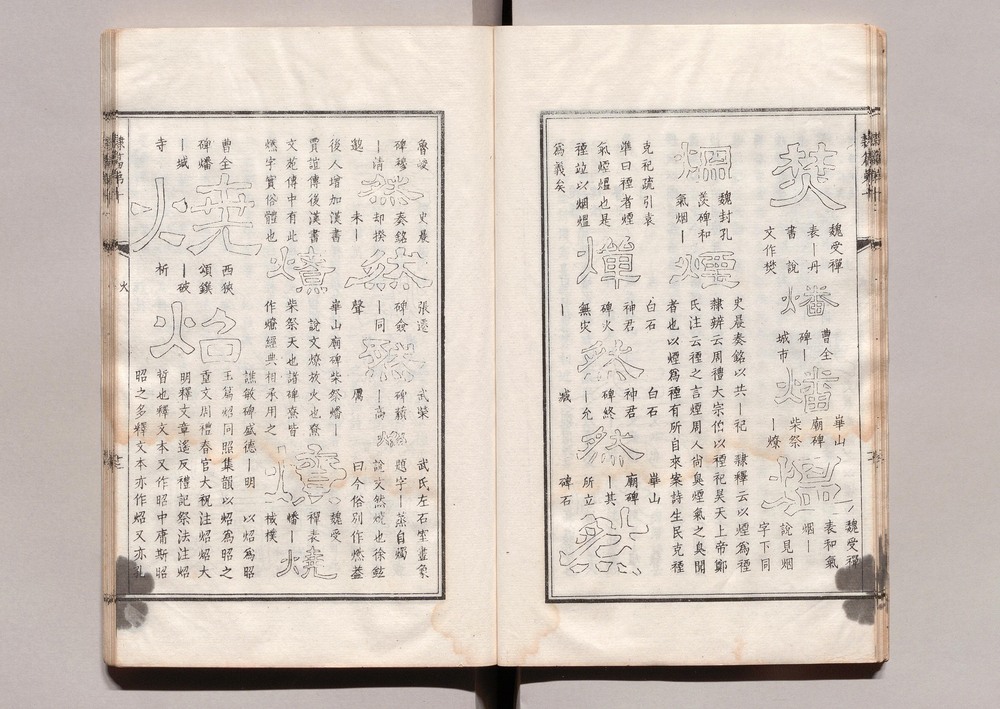 焚
魏受禪
表｜丹
書　說
文作樊
燔
曹全
碑｜
城市
燔
華山
廟碑
柴祭
｜燎
熅
魏受禪
表和氣
烟｜
說見烟
字下同
烟
魏封孔
羨碑和
氣烟｜
煙
史晨奏銘以共｜祀　隸釋云以煙為禋
隸辨云周禮大宗伯以禋祀昊天上帝鄭
氏注云禋之言煙周人尚臭煙氣之臭聞
者也以煙為禋有所自來案詩生民克禋
克祀疏引袁
準曰禋者煙
氣煙熅也是
禋竝以烟熅
為義矣
燀
白石
神君
碑火
無灾
｜
然
白石
神君
碑終
｜允
臧
然
華山
廟碑
｜其
所立
碑石
然
魯峻
碑穆
｜清
邈
然
史晨
奏銘
却揆
未｜
然
張遷
碑僉
｜同
聲
然
武榮
碑藐
｜高
厲
然
武氏左石室畫象
題字｜蒸自燭
說文然燒也徐鉉
曰今俗別作燃蓋
後人增加漢書
賈誼傳後漢書
文苑傳中有此
燃字實俗體也
燎
華山廟碑柴祭燔｜
說文燎放火也尞
柴祭天也諸碑尞皆
作燎經典相承用之
燎
魏受
禪表
燔｜
棫樸
燒
曹全
碑燔
｜城
寺
燒
西狹
頌鐉
｜破
析
炤
譙敏碑盛德｜明　以炤為昭
玉篇炤同照集韻以炤為昭之
重文周禮春官大祝注炤炤大
明釋文章遙反禮記祭法注炤
晢也釋文本又作昭中庸斯昭
昭之多釋文本亦作炤又亦孔
火